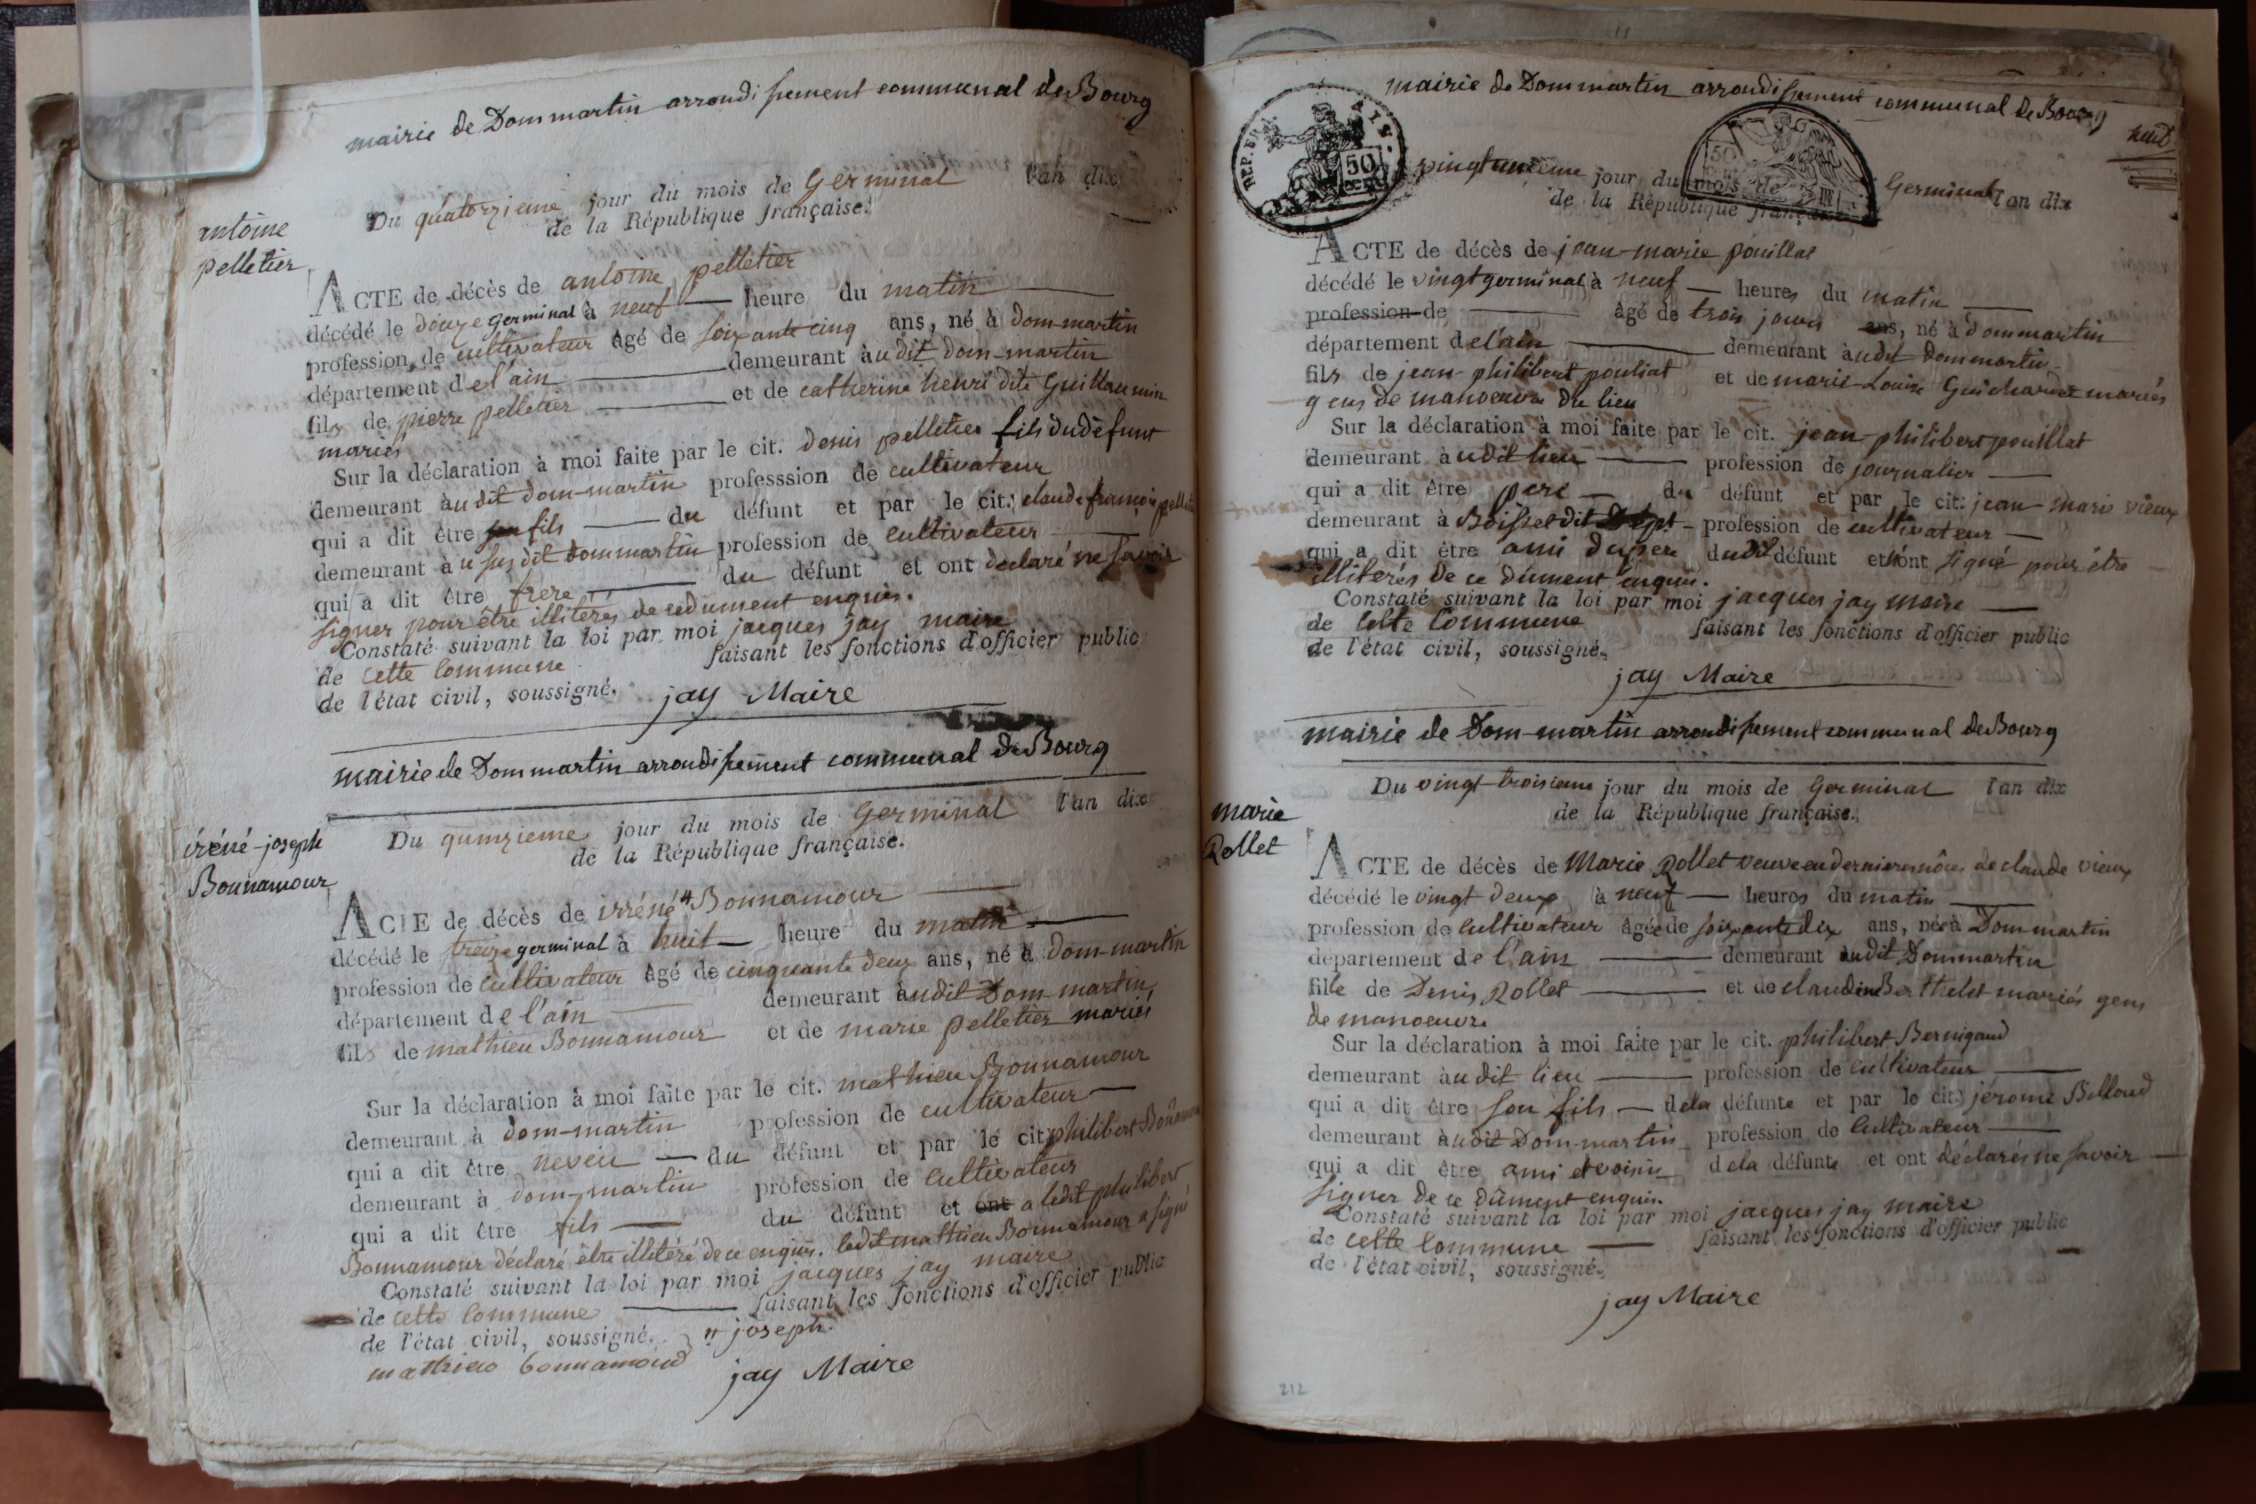 mairie de Dommartin arrondissement communal de Bourg
antoine
pelletier
Du quatorzieme jour du mois de Germinal l'an dix
de la République française.
ACTE de décès de antoine pelletier
décédé le douze germinal à neuf heure du matin
profession de cultivateur âgé de soixante cinq ans, né à dom-martin
département de l'ain demeurant audit dom-martin
fils de pierre pelletier et de catherine henri dite Guillaumin
mariés
Sur la déclaration à moi faite par le cit. denis pelletier fils du défunt
demeurant audit dom-martin professsion de cultivateur
qui a dit être fils du défunt et par le cit. claude françois pelletier
demeurant au susdit dommartin profession de cultivateur
qui a dit être frere du défunt et ont declaré ne savoir
signer pour être illiterés de ce dument enquis.
Constaté suivant la loi par moi jacques jay maire
de cette commune faisant les fonctions d'officier public
de l'état civil, soussigné.
jay Maire
mairie de Dommartin arrondissement communal de Bourg
iréné-joseph
Bonnamour
Du quinzieme jour du mois de Germinal l'an dix
de la République française.
ACTE de décès de irréné " Bonnamour
décédé le treize germinal à huit heure du matin
profession de cultivateur âgé de cinquante deux ans, né à dom-martin
département de l'ain demeurant audit Dom-martin
fils de mathieu Bonnamour et de marie pelletier mariés
Sur la déclaration à moi faite par le cit. mathieu Bonnamour
demeurant à dom-martin profession de cultivateur
qui a dit être neveu du défunt et par le cit. philibert Bonnamour
demeurant à dom-martin profession de cultivateur
qui a dit être fils du défunt et ont a ledit philibert
Bonnamour déclaré être illitéré de ce enquis. ledit mathieu Bonnamour a signé
Constaté suivant la loi par moi jacques jay maire
de cette commune faisant les fonctions d'officier public
de l'état civil, soussigné. " joseph.
mathieu bonnamoud
jay Maire
mairie de Dommartin arrondissement communal de Bourg
huit
REP. FRA.
50
50
vingtunieme jour du mois de Germinal l'an dix
de la République française
ACTE de décès de jean-marie pouillat
décédé le vingt germinal à neuf heures du matin
profession de âgé de trois jours ans, né à dommartin
département de l'ain demeurant audit dommartin
fils de jean philibert pouliat et de marie-Louise Guichard mariés
gens de manoeuvre du lieu
Sur la déclaration à moi faite par le cit. jean philibert pouillat
demeurant audit lieu profession de journalier
qui a dit être pere du défunt et par le cit: jean-marie vieux
demeurant à Boisset dit profession de cultivateur
qui a dit être ami du pere dudit défunt et n'ont signé pour être
illiterés de ce dûment enquis.
Constaté suivant la loi par moi jacques jay maire
de cette commune faisant les fonctions d'officier public
de l'état civil, soussigné.
jay Maire
mairie de Dom-martin arrondissement communal de Bourg
marie
Rollet
Du vingt-troisieme jour du mois de Germinal l'an dix
de la République française.
ACTE de décès de Marie Rollet veuve en dernieres nôces de claude vieux
décédé le vingt deux à neuf heures du matin
profession de cultivateur âgée de soixante dix ans, née à Dommartin
département de l'ain demeurant audit Dommartin
fille de Denis Rollet et de claudine Berthelet mariés gens
de manoeuvre
Sur la déclaration à moi faite par le cit. philibert Bernigaud
demeurant audit lieu profession de cultivateur
qui a dit être son fils de la défunte et par le cit. jérome Billoud
demeurant audit Dom-martin profession de cultivateur
qui a dit être ami et voisin de la défunte et ont déclarés ne savoir
signer de ce dûment enquis.
Constaté suivant la loi par moi jacques jay maire
de cette commune faisant les fonctions d'officier public
de l'état civil, soussigné.
jay Maire
212